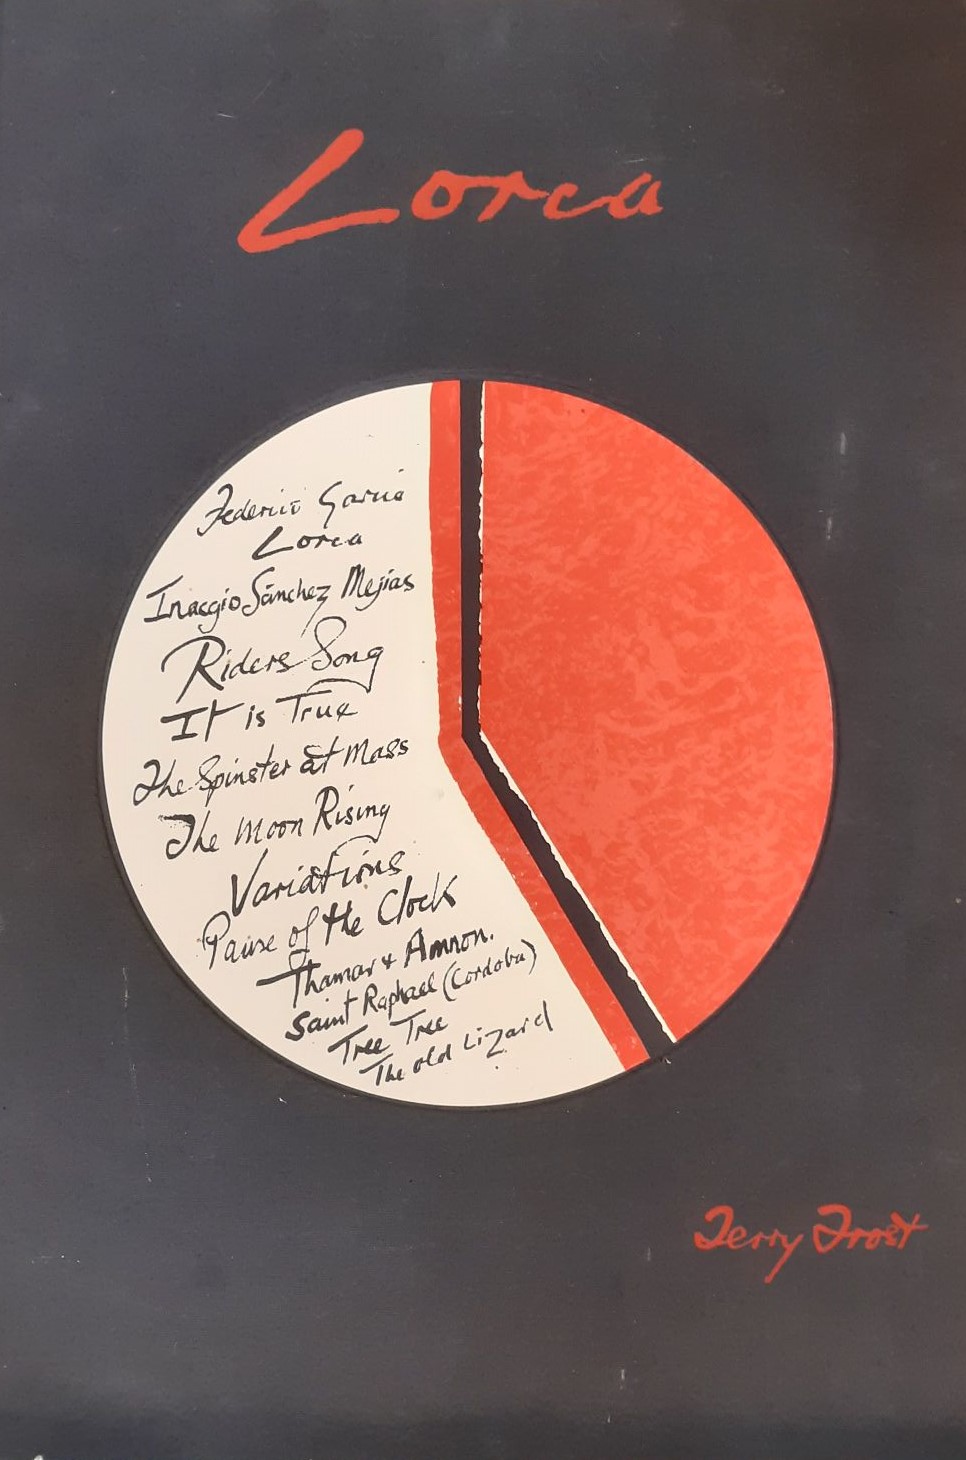 Lorca
Federico Garcia
Lorca
Inacgio Sánchez Mejias
Riders Song
It is True
The Spinster at Mass
The Moon Rising
Variations
Pause of the Clock
Thamar + Amnon.
Saint Raphael (Cordoba)
Tree Tree
The old Lizard
Terry Frost